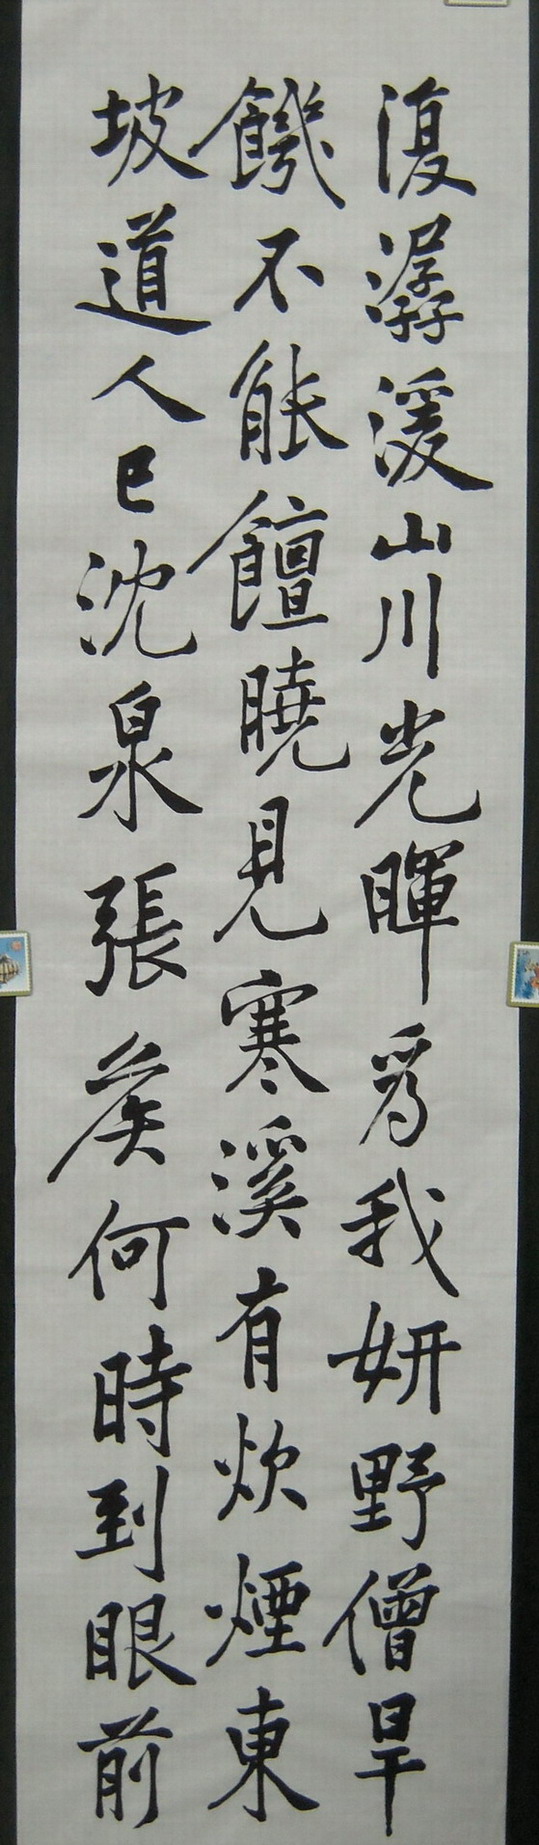 復潺湲山川光暉為我妍野僧旱
饑不能饘曉見寒溪有炊煙東
坡道人已沈泉張侯何時到眼前